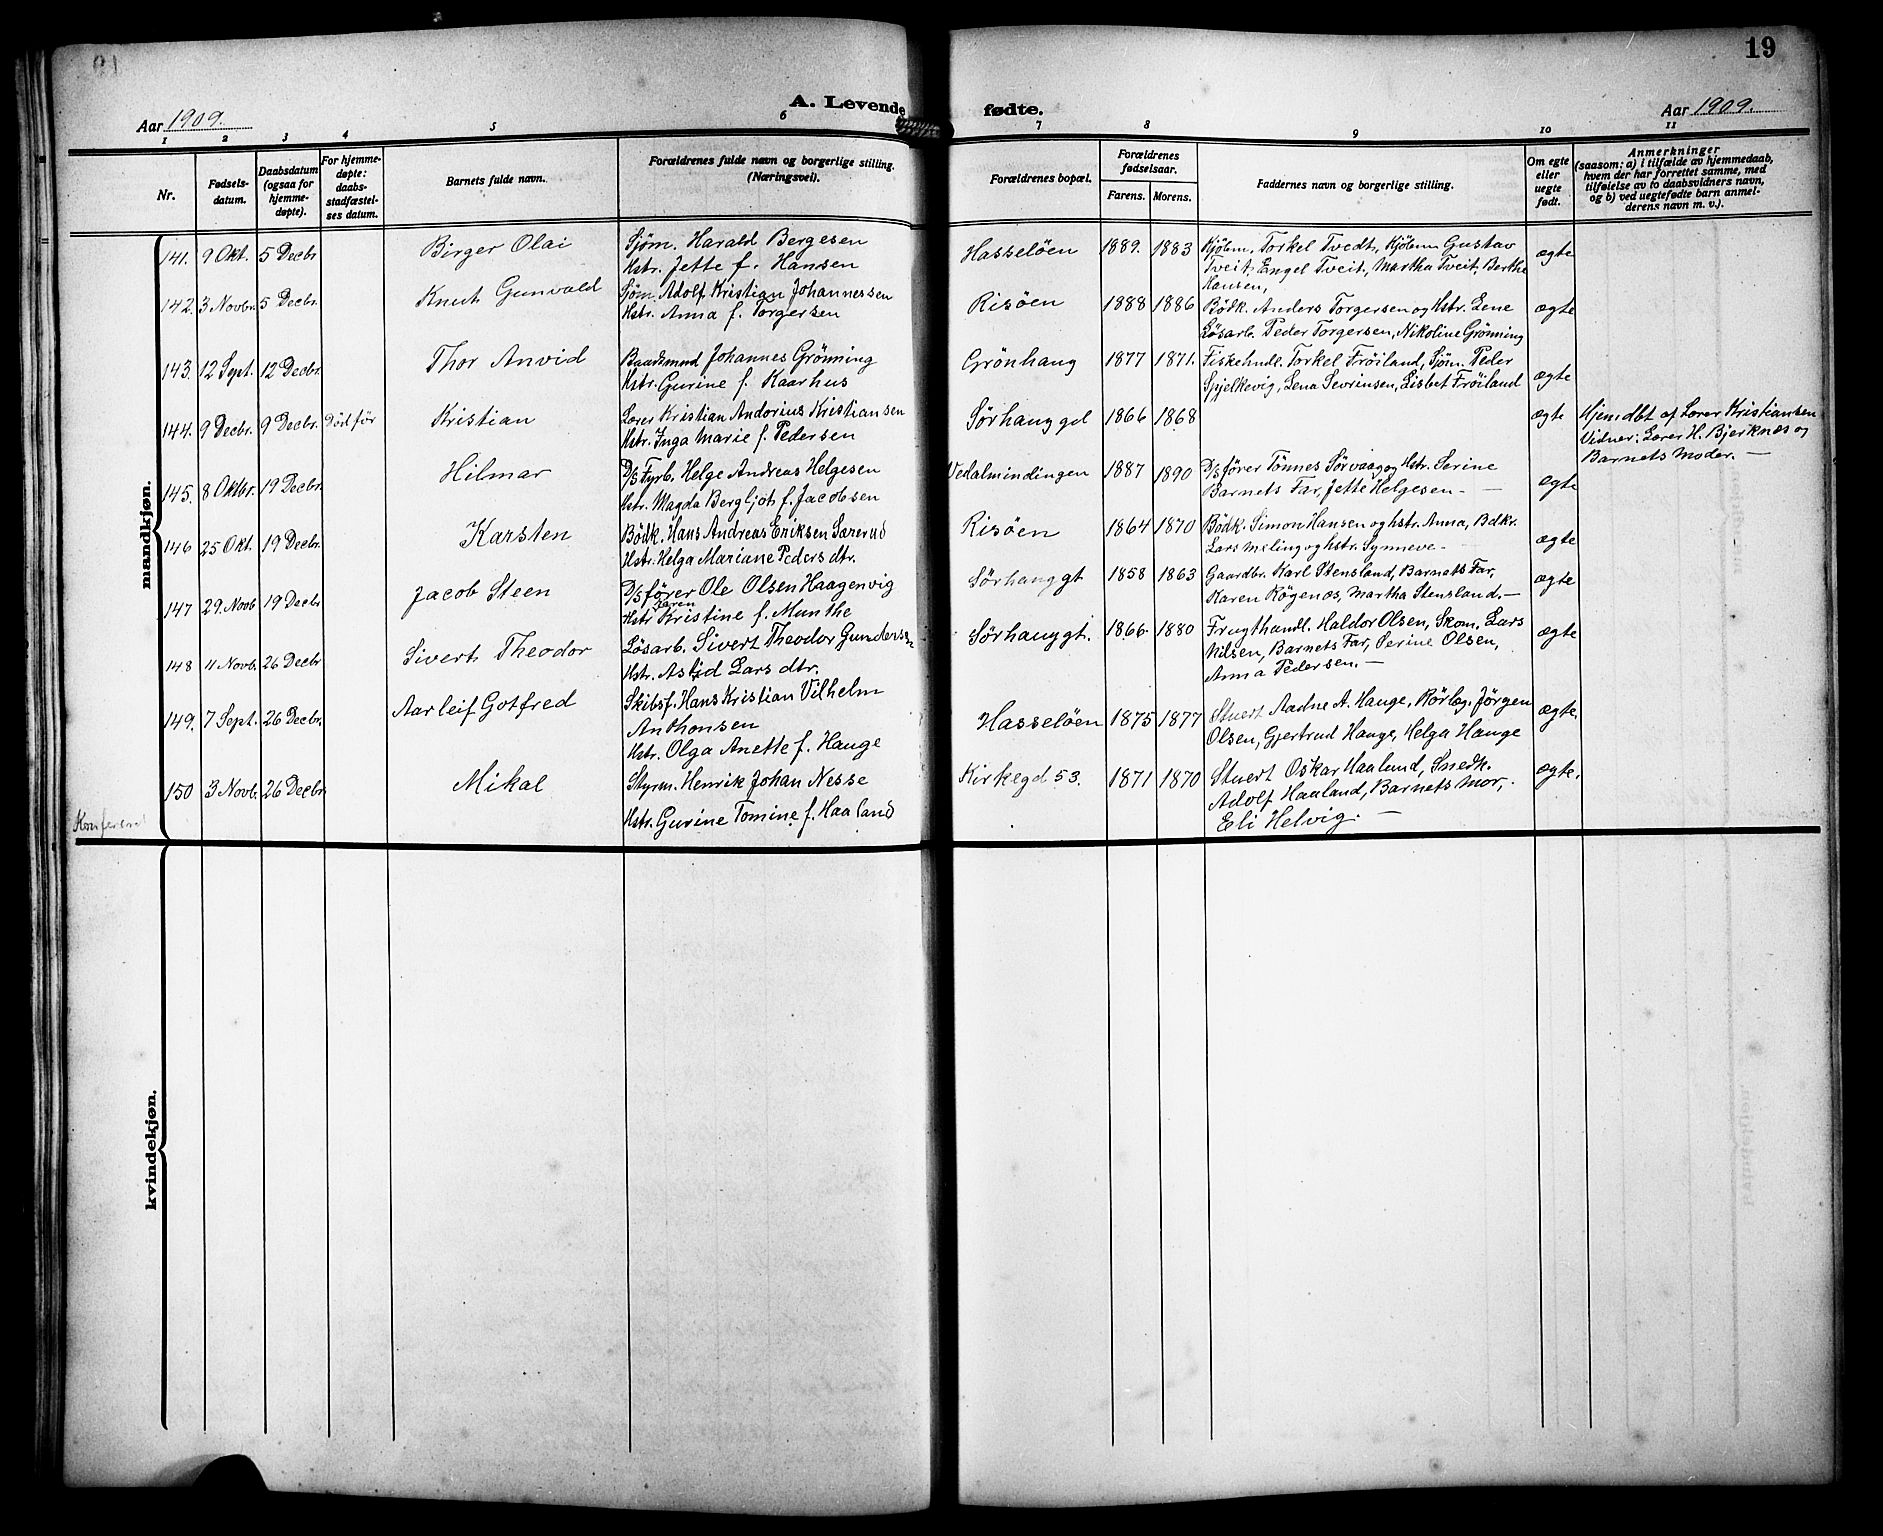 19
A. Levende fødte.
Aar 1909.
Aar 1909.
1 2 3 4 5 6 7 8 9 10 11
Nr.
Fødsels-
datum.
Daabsdatum
(ogsaa for
hjemme-
døpte).
For hjemme-
døpte:
daabs-
stadfæstel-
ses datum.
Barnets fulde navn.
Forældrenes fulde navn og borgerlige stilling.
(Næringsvei).
Forældrenes bopæl.
Forældrenes
fødselsaar.
Farens. Morens.
Faddernes navn og borgerlige stilling.
Om egte
eller
uegte
født.
Anmerkninger
(saasom: a) i tilfælde av hjemmedaab,
hvem der har forrettet samme, med
tilføielse av to daabsvidners navn,
og b) ved uegtefødte barn anmel-
derens navn m. v.).
mandkjøn.
141. 9 Okt. 5 Decbr Birger Olai
Sjøm. Harald Bergesen
Hstr. Jette f. Hansen
Hasseløen 1889. 1883
Kjøbm. Torkel Tvedt, Kjøbm Gustav
Tveit, Engel Tveit, Martha Tveit, Berthe
Hansen,
ægte
142. 3 Novbr. 5 Decbr. Knut Gunvald
Sjøm. Adolf Kristian Johannessen
Hstr. Anna f. Torgersen
Risøen 1888 1886
Bødk. Anders Torgersen og Hstr. Lene
Løsarb. Peder Torgersen, Nikoline Grønning
ægte
143. 12 Sept. 12 Decbr. Thor Anvid
Baadsmnd Johannes Grønning
Hstr. Gurine f. Kaarhus
Grønhaug 1877 1871.
Fiskehndl. Torkel Frøiland, Sjøm. Peder
Spjelkevig, Lena Sevrinsen, Lisbet Frøiland
ægte
144. 9 Decbr. 9 Decbr. Död för Kristian
Lærer Kristian Andorius Kristiansen
Hstr. Inga Marie f. Pedersen
Sørhaug gd 1866 1868
ægte
Hjemdbt af Lærer Kristiansen
Vidner: Lærer H. Bjerknæs og
Barnets Moder. —
145. 8 Oktbr. 19 Decbr. Hilmar
D/S Fyrb. Helge Andreas Helgesen
Hstr. Magda Bergljot f. Jacobsen
Vedalmindingen 1887 1890
D/S fører Tønnes Sørvaag og Hstr. Serine
Barnets Far, Jette Helgesen. —
ægte
146 25 Okt. 19 Decbr. Karsten
Bødk. Hans Andreas Eriksen Særerud
Hstr. Helga Mariane Peders dtr.
Risøen 1864 1870
Bødk. Simon Hansen og hstr. Anna, Bdkr.
Lars Meling og hstr. Synneve. —
ægte
147 29. Novb 19 Decbr Jacob Steen
D/S fører Ole Olsen Haagenvig
Hstr Karen Kristine f. Munthe
Sørhaug gt 1858 1863
Gaardbr. Karl Stensland, Barnets Far,
Karen Røgenæs, Martha Stensland, —
ægte
148 4 Novb. 26 Decbr Sivert Theodor
Løsarb. Sivert Theodor Gundersen
Hstr. Astrid Lars dtr.
Sørhauggt. 1866. 1880
Frugthandl. Haldor Olsen, Skom. Lars
Nilsen, Barnets Far, Serine Olsen,
Anna Pedersen. —
ægte
149. 7 Sept. 26 Decbr. Aarleif Gotfred
Skibsf. Hans Kristian Vilhelm
Anthonsen
Hstr. Olga Anette f. Hauge
Hasseløen 1875 1877
Stuert Aadne A. Hauge, Rørlæg. Jørgen
Olsen, Gjertrud Hauge, Helga Hauge
ægte.
150 3 Novb. 26 Decbr Mikal
Styrm. Henrik Johan Nesse
Hstr. Gurine Tomine f. Haaland
Kirkegd 53. 1871 1870
Stuert Oskar Haaland, Snedk.
Adolf Haaland, Barnets Mor,
Eli Helvig. —
ægte.
kvindekjøn.